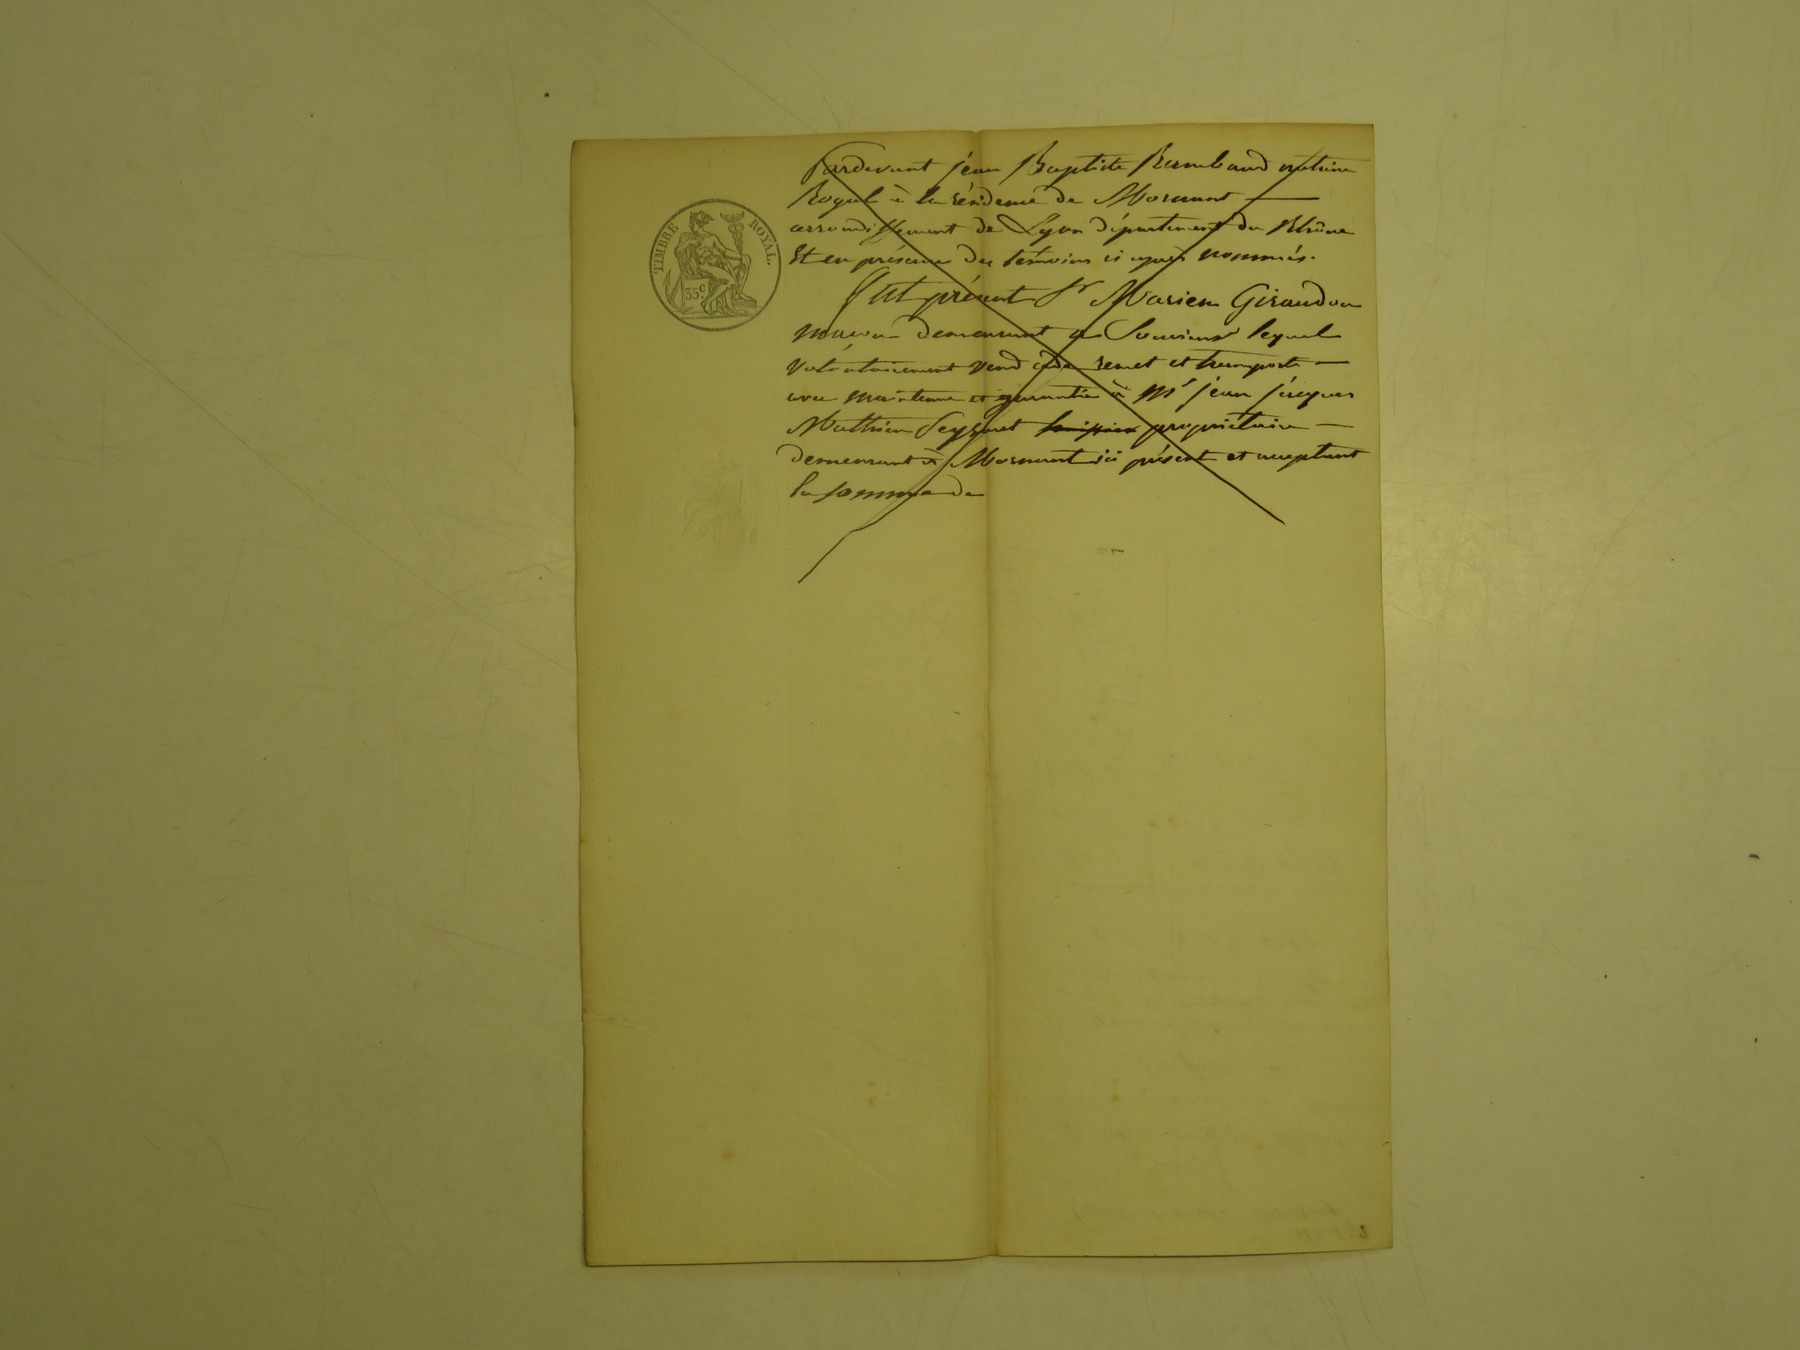 TIMBRE ROYAL.
35 c.
Pardevant Jean Baptiste Rambaud notaire
Royal à la résidence de Mornant
arrondissement de Lyon département du Rhône
Et en présence des témoins ci après nommés.
Fut présent Sr Marien Giraudon
maçon demeurant à lequel
volontairement vend cède remet et transporte
avec maintenue et garantie à Mr Jean Jacques
Mathieu Seyzaret huissier propriétaire
demeurant à Mornant ici présent et acceptant
la somme de